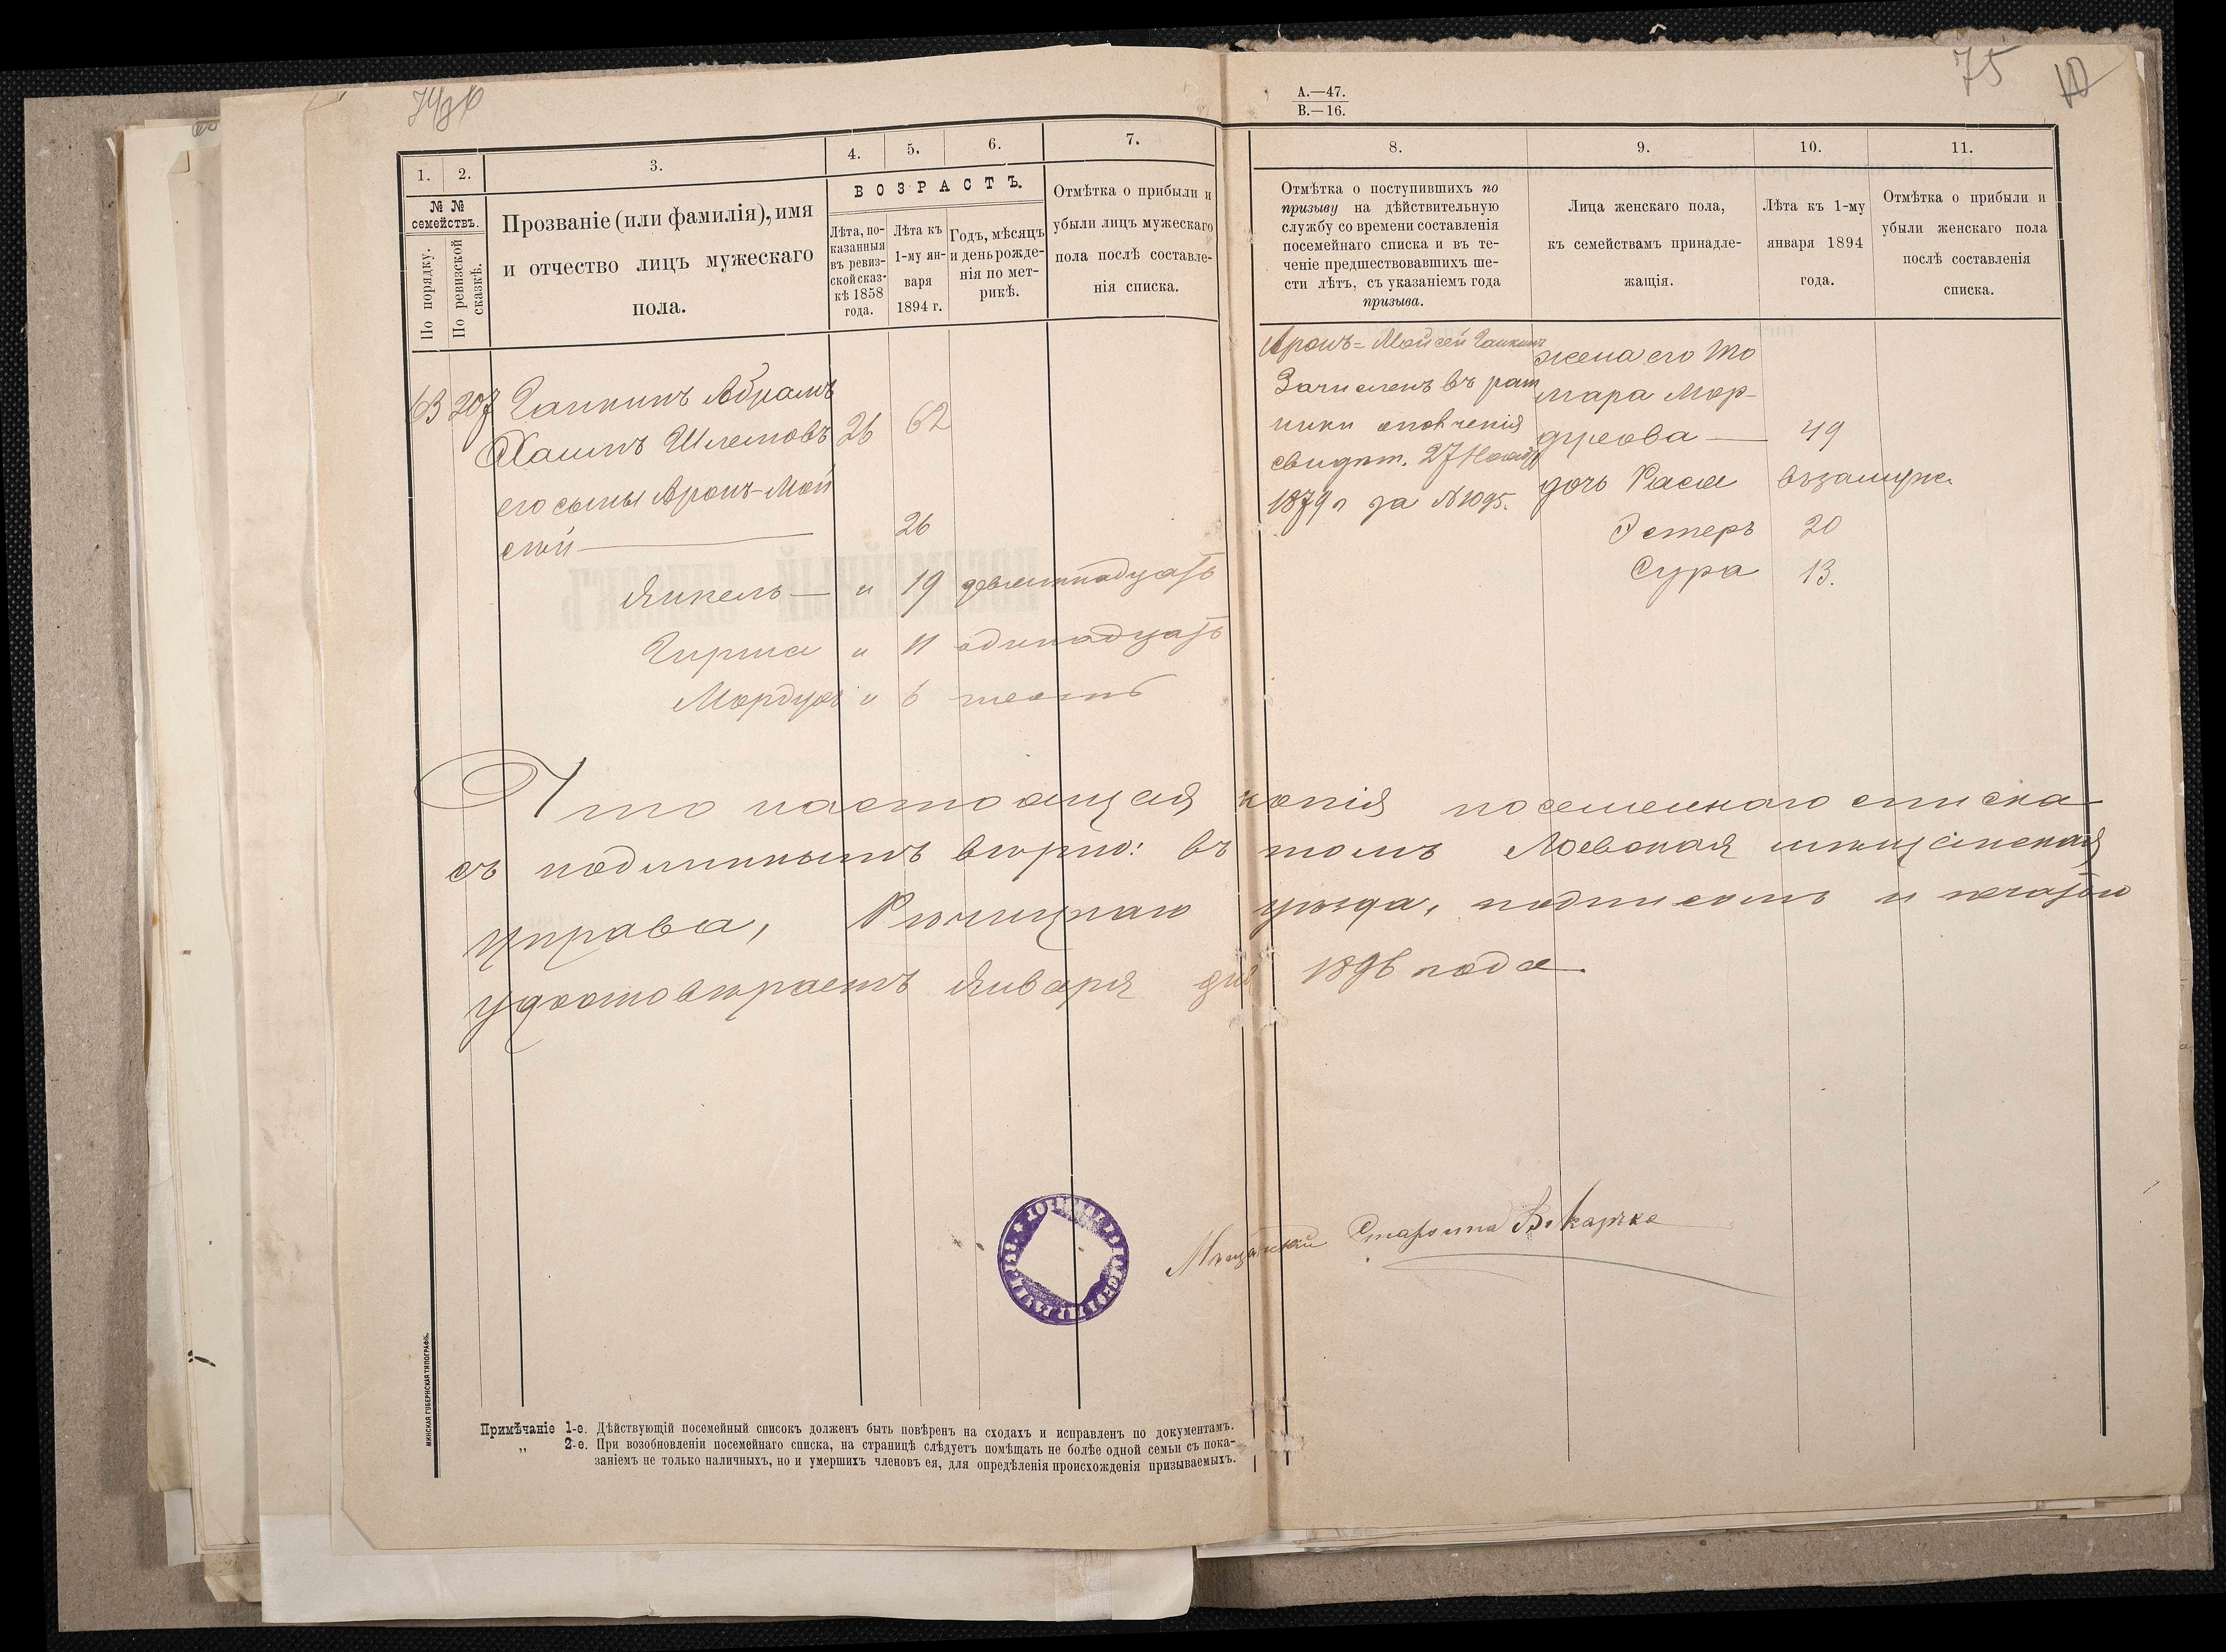 74об
75
10
А.—47.
В.—16.
1.
2.
3.
4.
5.
6.
7.
8.
9.
10.
11.
№ №
семействъ.
По порядку.
По ревизской
сказкѣ.
Прозваніе (или фамилія), имя
и отчество лицъ мужескаго
пола.
ВОЗРАСТЪ.
Лѣта, по-
казанныя
въ ревиз-
ской сказ-
кѣ 1858
года.
Лѣта къ
1-му ян-
варя
1894 г.
Годъ, мѣсяцъ
и день рожде-
нія по мет-
рикѣ.
Отмѣтка о прибыли и
убыли лицъ мужескаго
пола послѣ составле-
нія списка.
Отмѣтка о поступившихъ по
призыву на дѣйствительную
службу со времени составленія
посемейнаго списка и въ те-
ченіе предшествовавшихъ ше-
сти лѣтъ, съ указаніемъ года
призыва.
Лица женскаго пола,
къ семействамъ принадле-
жащія.
Лѣта къ 1-му
января 1894
года.
Отмѣтка о прибыли и
убыли женскаго пола
послѣ составленія
списка.
63 207 Галкинъ Абрамъ
Хаимъ Шлемовъ 26 62
его сынья Аронъ-Мой
сей — 26
Янкель — " 19 девятнадцать
Гирша " 11 одинадцать
Мордухъ " 6 шесть
Аронъ-Мойсей Галкинъ
Зачисленъ въ рат
ники ополченія
свидѣт. 27 Ноября
1879 г за № 1095.
жена его То
мара Мор-
духова — 49
дочь Рася въ замуже.
Эстеръ 20
Сура 13.
Что настоящая копія посемейнаго списка
съ подлиннымъ вѣрно: въ томъ Лоевская мѣщанская
управа, Рѣчицкаго уѣзда, подписомъ и печатью
удостовѣряетъ Января дня 1896 года.
Мѣщанскій Староста
МИНСКАЯ ГУБЕРНСКАЯ ТИПОГРАФІЯ.
Примѣчаніе 1-е. Дѣйствующій посемейный списокъ долженъ быть повѣренъ на сходахъ и исправленъ по документамъ.
„ 2-е. При возобновленіи посемейнаго списка, на страницѣ слѣдуетъ помѣщать не болѣе одной семьи съ пока-
заніемъ не только наличныхъ, но и умершихъ членовъ ея, для опредѣленія происхожденія призываемыхъ.